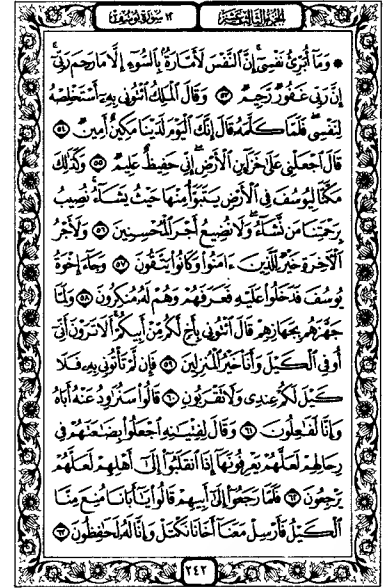 الجزء الثالث عشر ١٢ سورة يوسف
۞ وَمَآ أُبَرِّئُ نَفْسِىٓ إِنَّ ٱلنَّفْسَ لَأَمَّارَةٌۢ بِٱلسُّوٓءِ إِلَّا مَا رَحِمَ رَبِّىٓ
إِنَّ رَبِّى غَفُورٌ رَّحِيمٌ ٥٣ وَقَالَ ٱلْمَلِكُ ٱئْتُونِى بِهِۦٓ أَسْتَخْلِصْهُ
لِنَفْسِى فَلَمَّا كَلَّمَهُۥ قَالَ إِنَّكَ ٱلْيَوْمَ لَدَيْنَا مَكِينٌ أَمِينٌ ٥٤
قَالَ ٱجْعَلْنِى عَلَىٰ خَزَآئِنِ ٱلْأَرْضِ إِنِّى حَفِيظٌ عَلِيمٌ ٥٥ وَكَذَٰلِكَ
مَكَّنَّا لِيُوسُفَ فِى ٱلْأَرْضِ يَتَبَوَّأُ مِنْهَا حَيْثُ يَشَآءُ نُصِيبُ
بِرَحْمَتِنَا مَن نَّشَآءُ وَلَا نُضِيعُ أَجْرَ ٱلْمُحْسِنِينَ ٥٦ وَلَأَجْرُ
ٱلْءَاخِرَةِ خَيْرٌ لِّلَّذِينَ ءَامَنُوا۟ وَكَانُوا۟ يَتَّقُونَ ٥٧ وَجَآءَ إِخْوَةُ
يُوسُفَ فَدَخَلُوا۟ عَلَيْهِ فَعَرَفَهُمْ وَهُمْ لَهُۥ مُنكِرُونَ ٥٨ وَلَمَّا
جَهَّزَهُم بِجَهَازِهِمْ قَالَ ٱئْتُونِى بِأَخٍ لَّكُم مِّنْ أَبِيكُمْ أَلَا تَرَوْنَ أَنِّىٓ
أُوفِى ٱلْكَيْلَ وَأَنَا۠ خَيْرُ ٱلْمُنزِلِينَ ٥٩ فَإِن لَّمْ تَأْتُونِى بِهِۦ فَلَا
كَيْلَ لَكُمْ عِندِى وَلَا تَقْرَبُونِ ٦٠ قَالُوا۟ سَنُرَٰوِدُ عَنْهُ أَبَاهُ
وَإِنَّا لَفَٰعِلُونَ ٦١ وَقَالَ لِفِتْيَٰنِهِ ٱجْعَلُوا۟ بِضَٰعَتَهُمْ فِى
رِحَالِهِمْ لَعَلَّهُمْ يَعْرِفُونَهَآ إِذَا ٱنقَلَبُوٓا۟ إِلَىٰٓ أَهْلِهِمْ لَعَلَّهُمْ
يَرْجِعُونَ ٦٢ فَلَمَّا رَجَعُوٓا۟ إِلَىٰٓ أَبِيهِمْ قَالُوا۟ يَٰٓأَبَانَا مُنِعَ مِنَّا
ٱلْكَيْلُ فَأَرْسِلْ مَعَنَآ أَخَانَا نَكْتَلْ وَإِنَّا لَهُۥ لَحَٰفِظُونَ ٦٣
٢٤٢